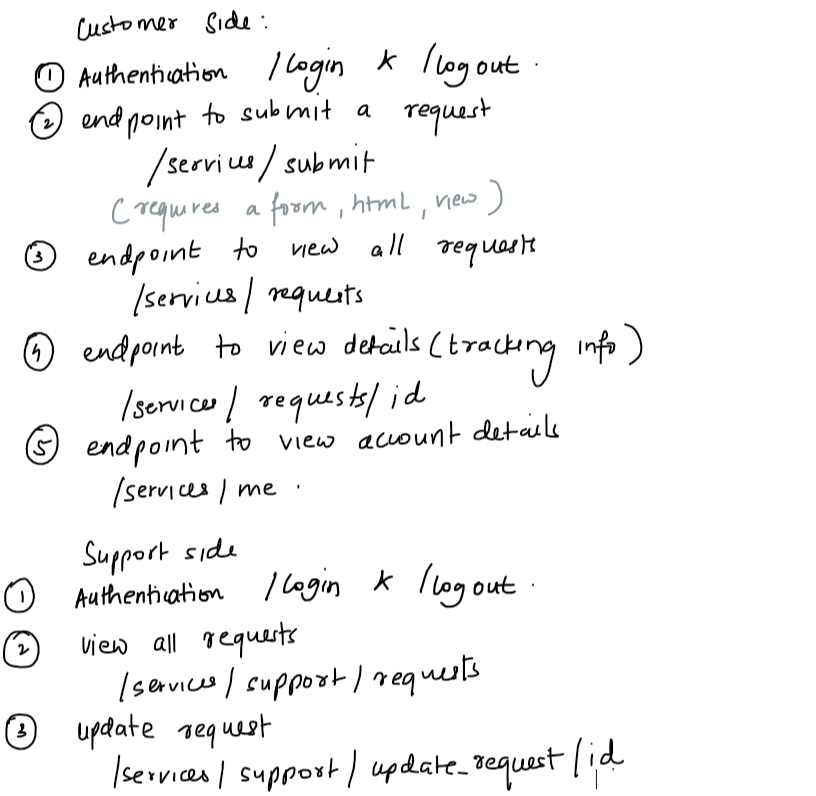 Customer Side :
① Authentication /login * /logout .
② endpoint to submit a request
/services/submit
(requires a form, html, view)
③ endpoint to view all requests
/services/requests
④ endpoint to view details (tracking info)
/services/requests/id
⑤ endpoint to view account details
/services/me .
Support side
① Authentication /login * /logout .
② view all requests
/services/support/requests
③ update request
/services/support/update_request/id